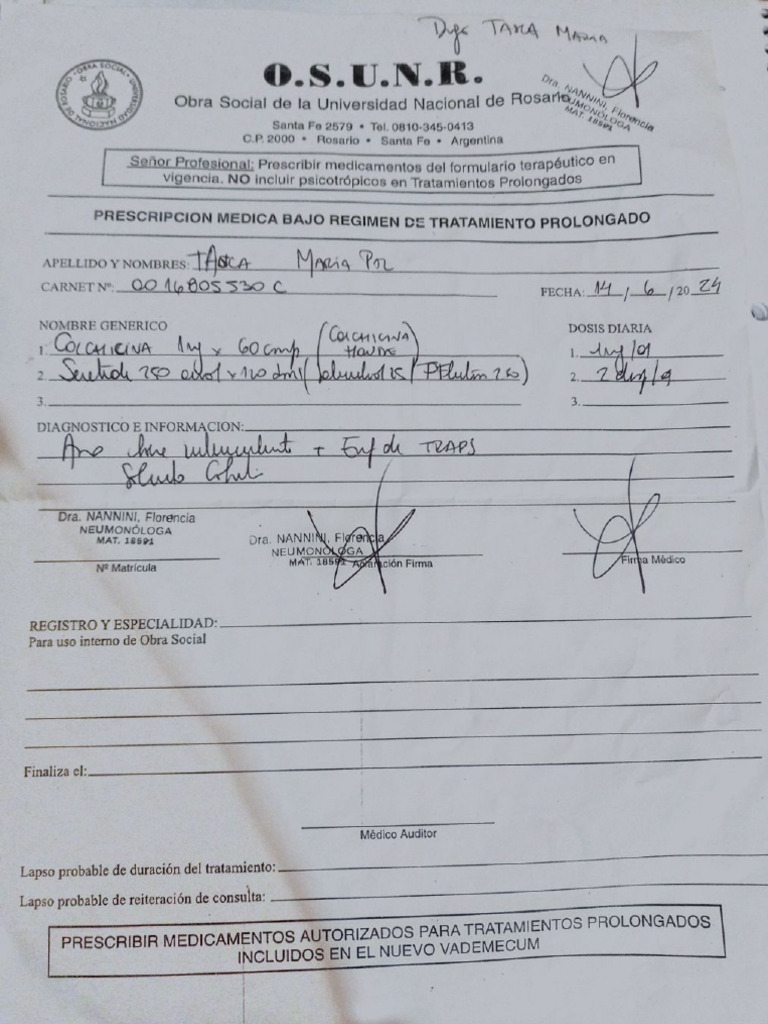 Digo TASCA MARIA
OBRA SOCIAL UNIVERSIDAD NACIONAL DE ROSARIO
O.S.U.N.R.
Obra Social de la Universidad Nacional de Rosario
Dra. NANNINI, Florencia
NEUMONÓLOGA
MAT. 18591
Santa Fe 2579 • Tel. 0810-345-0413
C.P. 2000 • Rosario • Santa Fe • Argentina
Señor Profesional: Prescribir medicamentos del formulario terapéutico en
vigencia. NO incluir psicotrópicos en Tratamientos Prolongados
PRESCRIPCION MEDICA BAJO REGIMEN DE TRATAMIENTO PROLONGADO
APELLIDO Y NOMBRES: TASCA MARIA PAZ
CARNET Nº: 0016805530 C FECHA: 14 / 6 / 20 24
NOMBRE GENERICO DOSIS DIARIA
1. COLCHICINA 1mg x 60 comp (COLCHICINA HOUDE) 1. 1mg/d
2. Seretide 250 aerosol x 120 dosis (salmeterol 25 / 250) 2. 2 /d
3. 3.
DIAGNOSTICO E INFORMACION:
Asma + Enf de TRAPS
Dra. NANNINI, Florencia
NEUMONÓLOGA
MAT. 18591
Nº Matrícula
Dra. NANNINI, Florencia
NEUMONÓLOGA
MAT. 18591 Aclaración Firma
Firma Médico
REGISTRO Y ESPECIALIDAD:
Para uso interno de Obra Social
Finaliza el:
Médico Auditor
Lapso probable de duración del tratamiento:
Lapso probable de reiteración de consulta:
PRESCRIBIR MEDICAMENTOS AUTORIZADOS PARA TRATAMIENTOS PROLONGADOS
INCLUIDOS EN EL NUEVO VADEMECUM